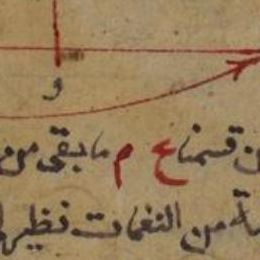 و
ن قسمنا ع م ما بقى من
ة من النغمات نظير